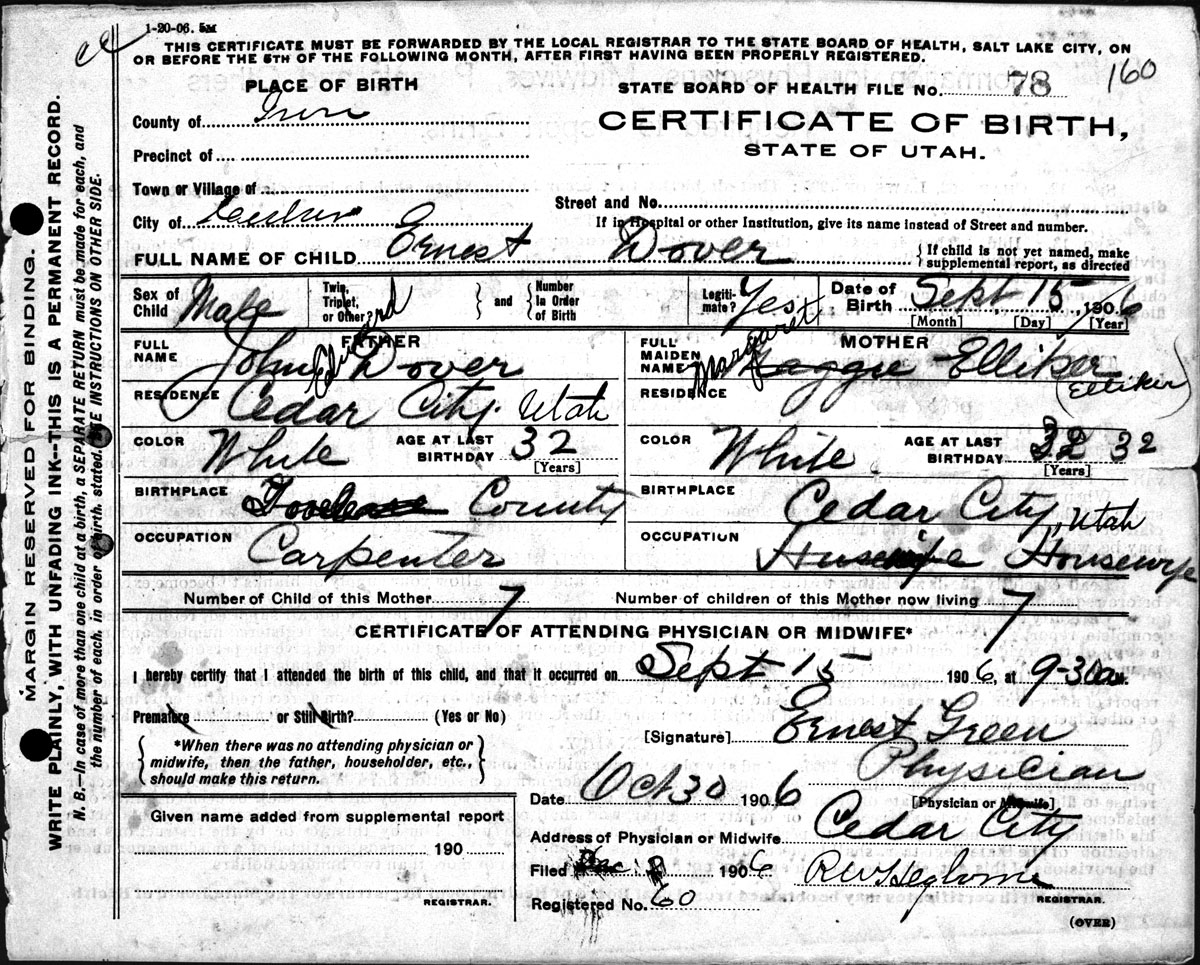 1-20-06. 5M
THIS CERTIFICATE MUST BE FORWARDED BY THE LOCAL REGISTRAR TO THE STATE BOARD OF HEALTH, SALT LAKE CITY, ON
OR BEFORE THE 5TH OF THE FOLLOWING MONTH, AFTER FIRST HAVING BEEN PROPERLY REGISTERED.
160
PLACE OF BIRTH
STATE BOARD OF HEALTH FILE No. 78
County of Iron
CERTIFICATE OF BIRTH,
STATE OF UTAH.
Precinct of
Town or Village of
Street and No.
City of
If in Hospital or other Institution, give its name instead of Street and number.
FULL NAME OF CHILD Ernest Dover
{If child is not yet named, make
supplemental report, as directed
Sex of Child Male
Twin, Triplet, or Other} and {Number in Order of Birth
Legiti-mate? Yes
Date of Birth Sept. 15 1906
[Month] [Day] [Year]
FATHER
FULL NAME John Edward Dover
MOTHER
FULL MAIDEN NAME Margaret Maggie Elliker
(Elliker)
RESIDENCE Cedar City. Utah
RESIDENCE
COLOR White
AGE AT LAST BIRTHDAY 32
[Years]
COLOR White
AGE AT LAST BIRTHDAY 32 32
[Years]
BIRTHPLACE County
BIRTHPLACE Cedar City, Utah
OCCUPATION Carpenter
OCCUPATION Housewife
Number of Child of this Mother 7
Number of children of this Mother now living 7
CERTIFICATE OF ATTENDING PHYSICIAN OR MIDWIFE*
I hereby certify that I attended the birth of this child, and that it occurred on Sept 15 1906, at 9-30 a m.
Premature or Still Birth? (Yes or No)
*When there was no attending physician or
midwife, then the father, householder, etc.,
should make this return.
[Signature] Ernest Green
Physician
[Physician or Midwife]
Date Oct 30 1906
Given name added from supplemental report
190
REGISTRAR.
Address of Physician or Midwife Cedar City
Filed Dec 1906
REGISTRAR.
Registered No. 60
(OVER)
MARGIN RESERVED FOR BINDING.
WRITE PLAINLY, WITH UNFADING INK--THIS IS A PERMANENT RECORD.
N. B.—In case of more than one child at a birth, a SEPARATE RETURN must be made for each, and
the number of each, in order of birth, stated. SEE INSTRUCTIONS ON OTHER SIDE.